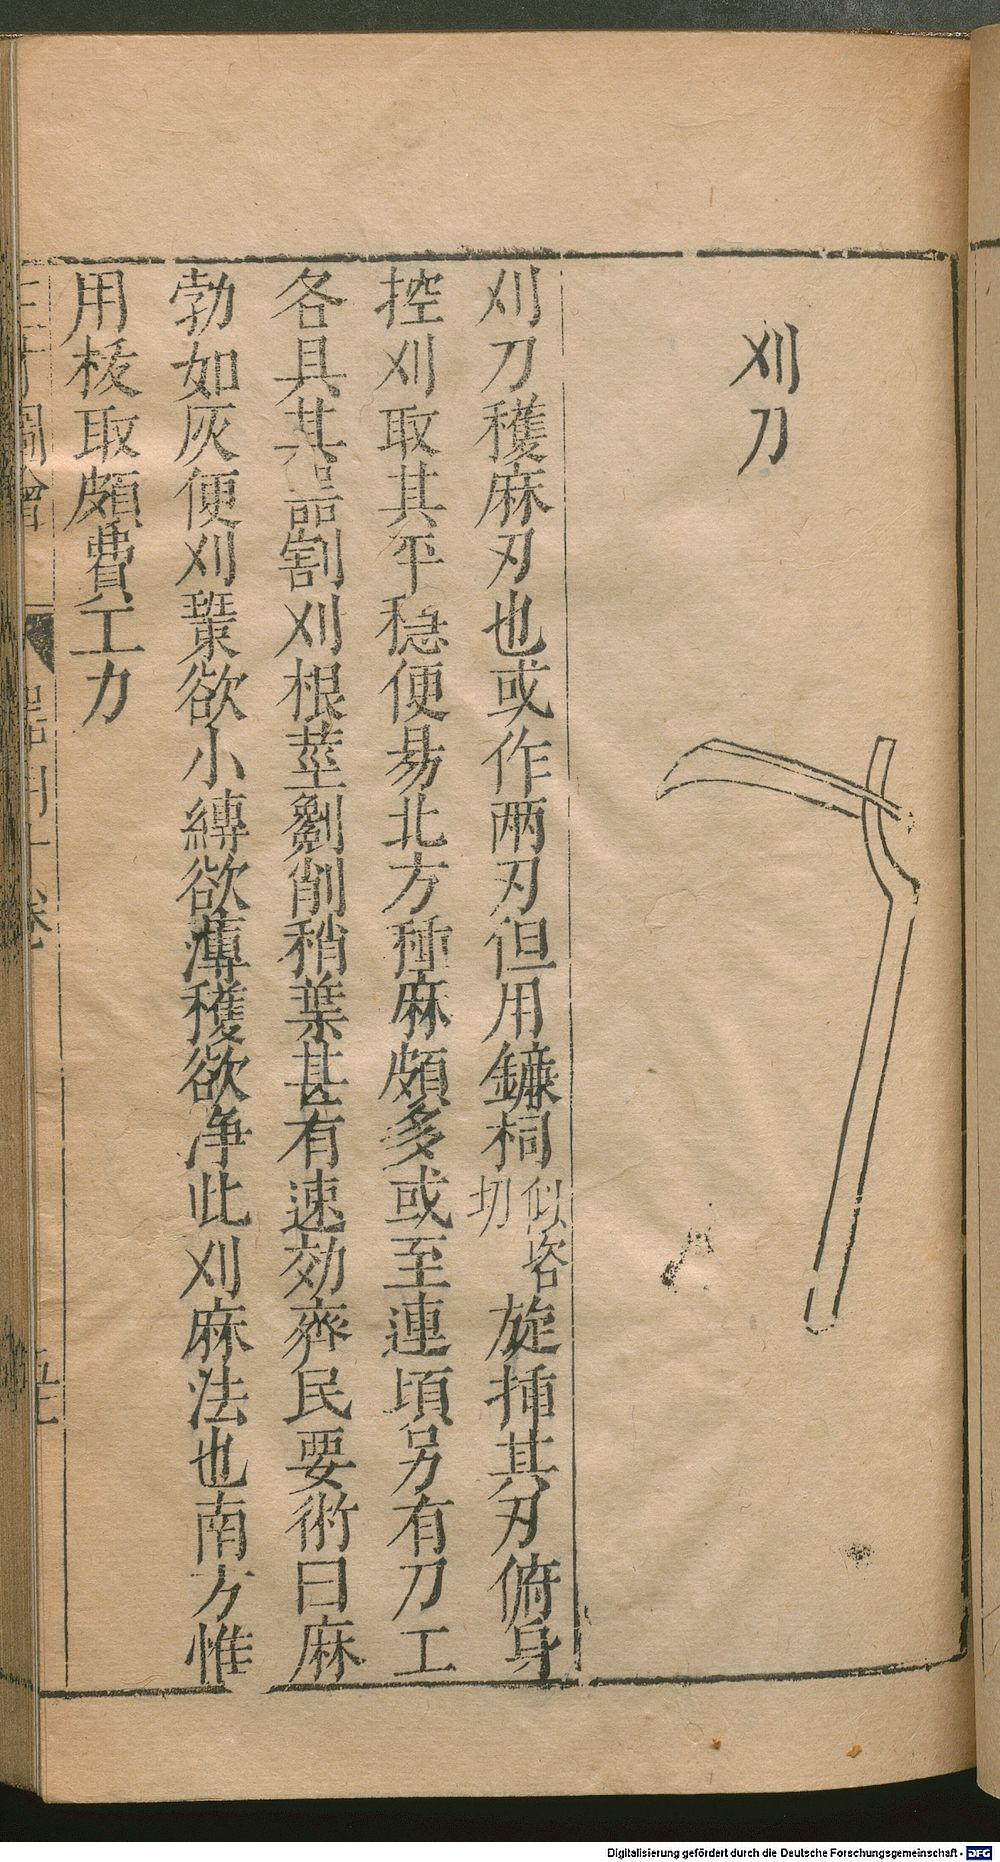 刈刀
刈刀穫麻刃也或作兩刃但用鐮柌似咨切旋揷其刃俯身
控刈取其平穩便易北方種麻頗多或至連頃另有刀工
各具其器割刈根莖劙削稍葉甚有速効齊民要術曰麻
勃如灰便刈䅌欲小縳欲薄穫欲净此刈麻法也南方惟
用柭取頗費工力
三才圖會
器用十卷
Digitalisierung gefördert durch die Deutsche Forschungsgemeinschaft - DFG